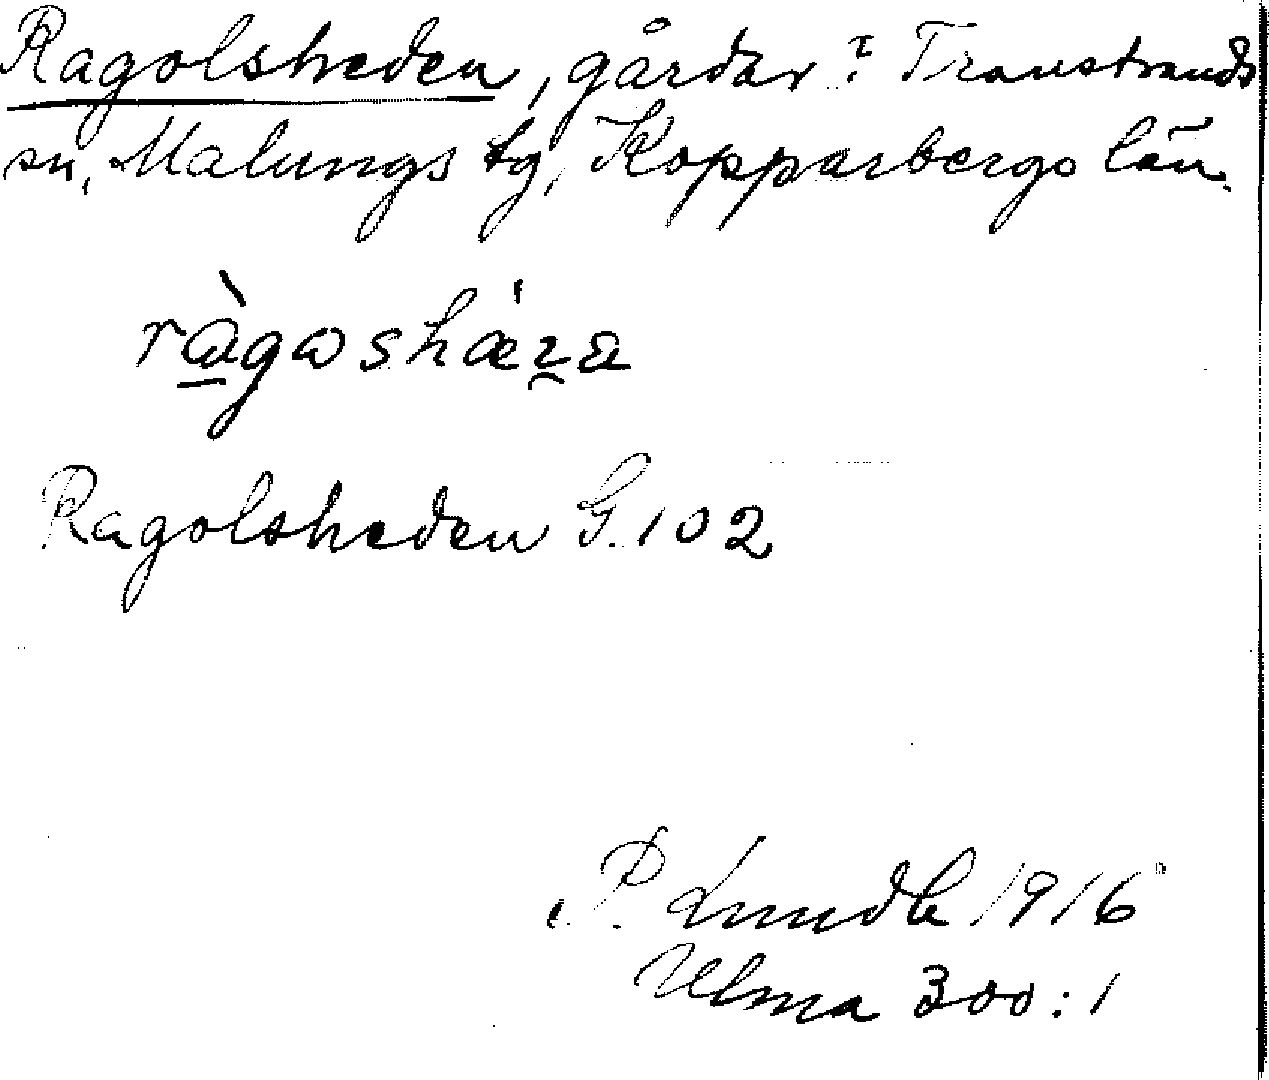 Ragolsheden, gårdar i Transtrands
sn, Malungs tg, Kopparbergs län.
Ragolsheden G. 102
P. Lundh 1916
Ulma 300:1